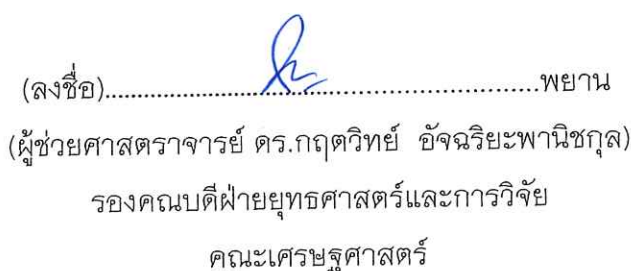 (ลงชื่อ)................................................................พยาน
(ผู้ช่วยศาสตราจารย์ ดร.กฤตวิทย์ อัจฉริยะพานิชกุล)
รองคณบดีฝ่ายยุทธศาสตร์และการวิจัย
คณะเศรษฐศาสตร์